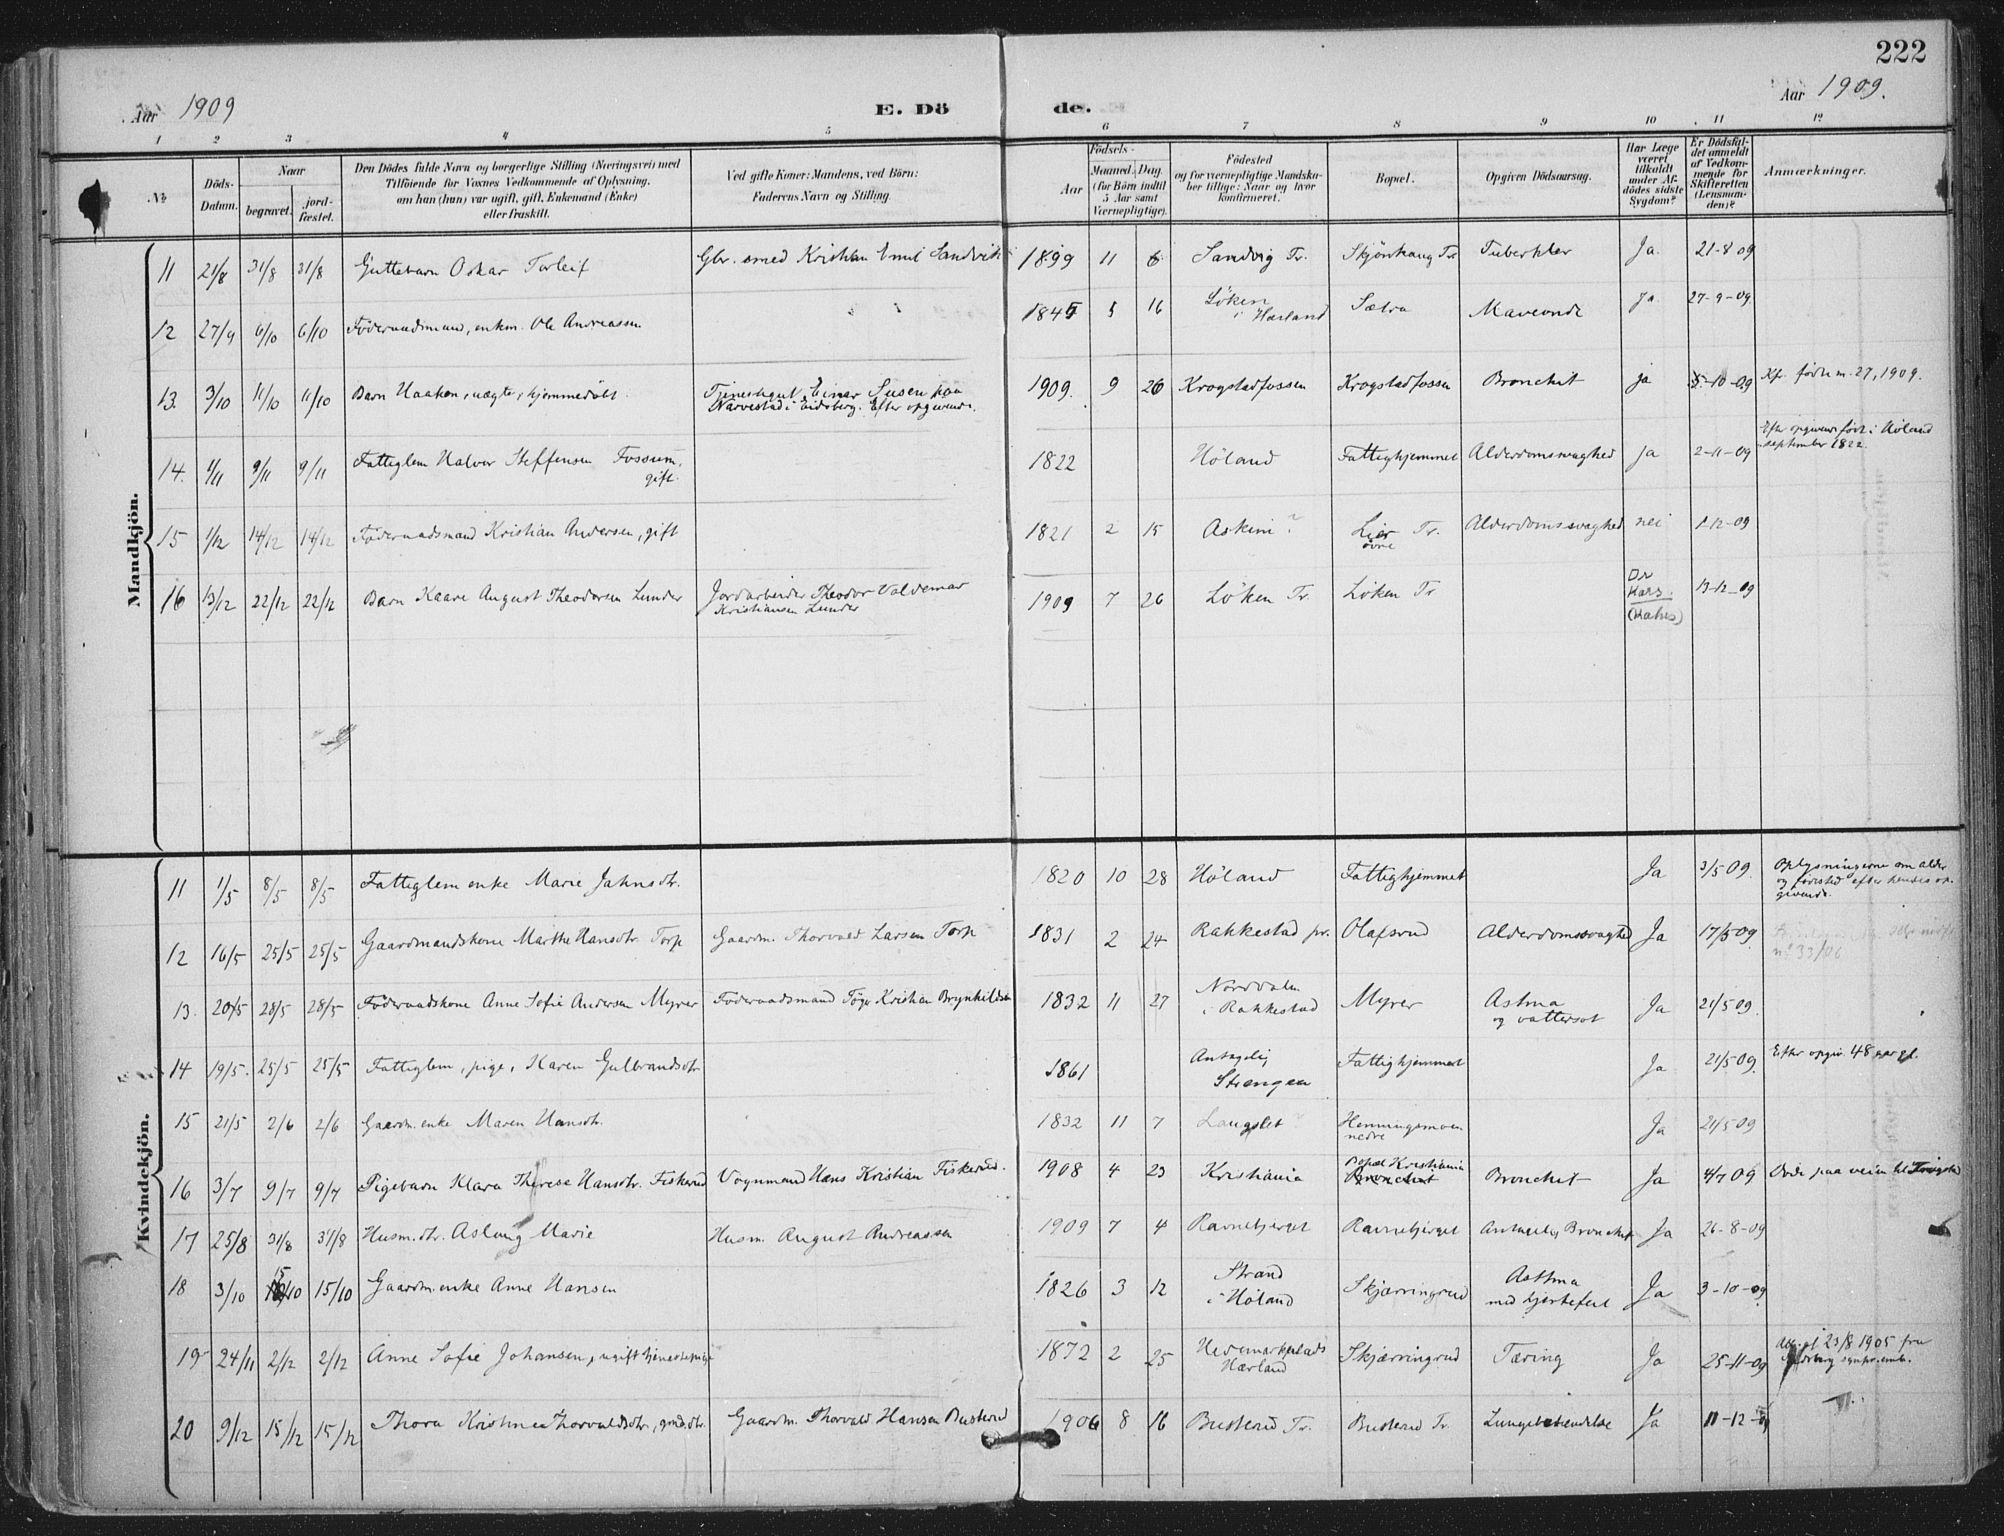 222
Aar 1909
E. Dö de.
Aar 1909.
1 2 3 4 5 6 7 8 9 10 11 12
№
Döds-Datum.
Naar
begravet.
jord-fæstet.
Den Dödes fulde Navn og borgerlige Stilling (Næringsvei) med
Tilföiende for Voxnes Vedkommende af Oplysning,
om han (hun) var ugift, gift, Enkemand (Enke)
eller fraskilt.
Ved gifte Koner: Mandens, ved Börn:
Faderens Navn og Stilling.
Födsels-
Aar
Maaned. Dag.
(for Börn indtil
5 Aar samt
Værnepligtige).
Födested
og for værnepligtige Mandska-
ber tillige: Naar og hvor
konfirmeret.
Bopæl.
Opgiven Dödsaarsag.
Har Læge
været
tilkaldt
under Af-
dödes sidste
Sygdom?
Er Dödsfal-
det anmeldt
af Vedkom-
mende for
Skifteretten
(Lensman-
den)?
Anmærkninger.
Mandkjön.
11 21/8 31/8 31/8 Guttebarn Oskar Torleif Gbr. smed Kristian Emil Sandvik 1899 11 6 Sandvig Tr. Skjönhaug Tr Tuberkler Ja. 21-8 09
12 27/9 6/10 6/10 Föderaadsmand, enkm. Ole Andreassen 16 Löken i Hærland Sætra Maveonde ja. 27-9-09
13. 3/10 11/10 11/10 Barn Haakon, uægte, hjemmedöbt. Tjenestegut, Einar paa
Narvestad i Eidsberg. Efter opgivende. 1909. 9 26 Krogstadfossen Krogstadfossen Bronchit ja 5-10-09 Kfr. födte n. 27, 1909.
14. 1/11 9/11 9/11 Fattiglem Halvor Steffensen Fossum,
gift. 1822 Höland Fattighjemmet Alderdomssvaghed ja 2-11-09 Efter opgivende född i Höland
i september 1822.
15 1/12 14/12 14/12 Föderaadsmand Kristian Andersen, gift 1821 2 15 Askim? Lier Tr.
övre Alderdomssvaghed nei 1-12-09
16 13/12 22/12 22/12 Barn Kaare August Theodorsen Lunder Jordarbeider Theodor Valdemar
Kristiansen Lunder 1909 7 26 Löken Tr. Löken Tr Dr
Kars.
(Kahrs) 13-12-09
Kvindekjön.
11 1/5 8/5 8/5 Fattiglem enke Marie Jahnsdtr. 1820 10 28 Höland Fattighjemmet Ja 3/5 09. Oplysningerne om alder
og fødested efter hendes op-
givende.
12 16/5 25/5 25/5 Gaardmandskone Marthe Hansdtr. Torp Gaardm. Thorvald Larsen Torp 1831 2 24 Rakkestad pr. Olafsrud Alderdomssvaghed Ja 17/5 09 no 33/06
13. 20/5 28/5 28/5 Föderaadskone Anne Sofie Andersen Myrer Föderaadsmand Kristian Brynhildsen 1832 11 27 Norddalen
i Rakkestad Myrer Astma
og vattersot Ja 21/5 09.
14 19/5. 25/5 25/5 Fattiglem, pige, Karen Gulbrandsdtr. 1861 Antagelig
Strengen Fattighjemmet Ja 21/5 09. Efter opgiv. 48 aar gl.
15 21/5 2/6 2/6 Gaardm. enke Maren Hansdtr. 1832 11 7 Langslet? Henningsmoen
nedre Ja 21/5 09
16 3/7 9/7 9/7 Pigebarn Klara Therese Hansdtr. Fiskerud Vognmand Hans Kristian Fiskerud. 1908 4 23 Kristiania Bopæl Kristiania
Bronchit Bronchit Ja 4/7 09 Döde paa veien til Trögstad
17 25/8 31/8 31/8 Husm.dtr. Aslaug Marie Husm. August Andreassen 1909 7 4 Ravnebjerget Ravnebjerget Antagelig Bronchit Ja 26-8-09
18 3/10 15/10 15/10 Gaardm. enke Anne Hansen 1826 3 12 Strand
i Höland Skjærringrud Asthma
med hjertefeil Ja 3-10-09
19 24/11 2/12 2/12 Anne Sofie Johansen, ugift tjenestepige 1872 2 25 Hedemarkplads
Hærland Skjærringrud Tæring Ja 25-11-09 23/8 1905 fra
20 9/12 15/12 15/12 Thora Kristinea Thorvaldsdtr., gmds.dtr. Gaardm. Thorvald Hansen Busterud 1906 8 16 Busterud Tr. Busterud Tr. Lungebetændelse Ja 11-12-09